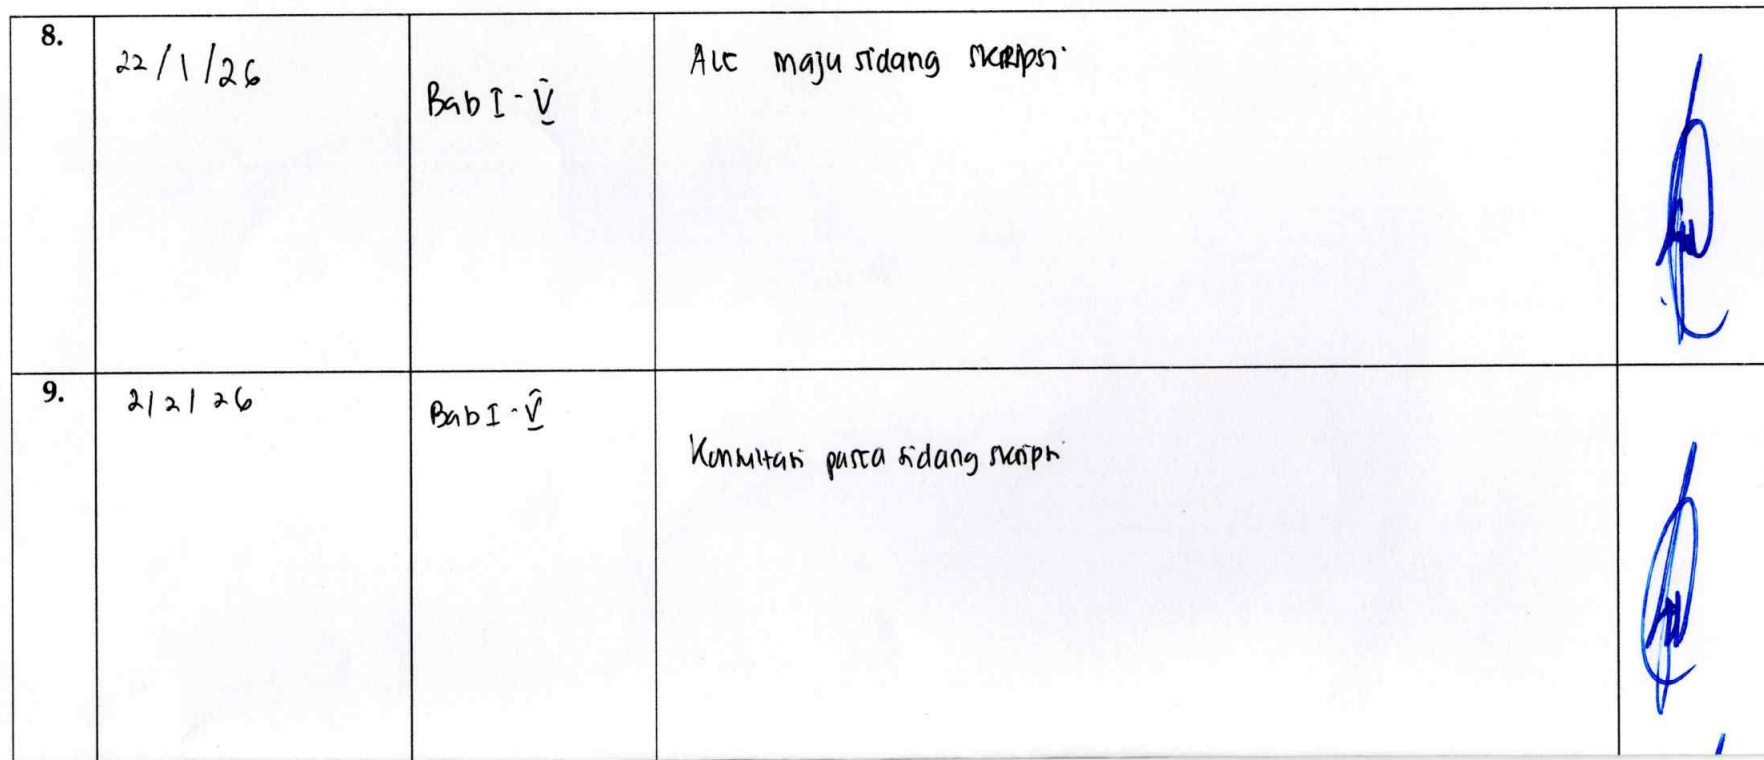 8.
22/1/26
Bab I - V
Acc maju sidang skripsi.
9.
2/2/26
Bab I - V
Konsultasi pasca sidang skripsi